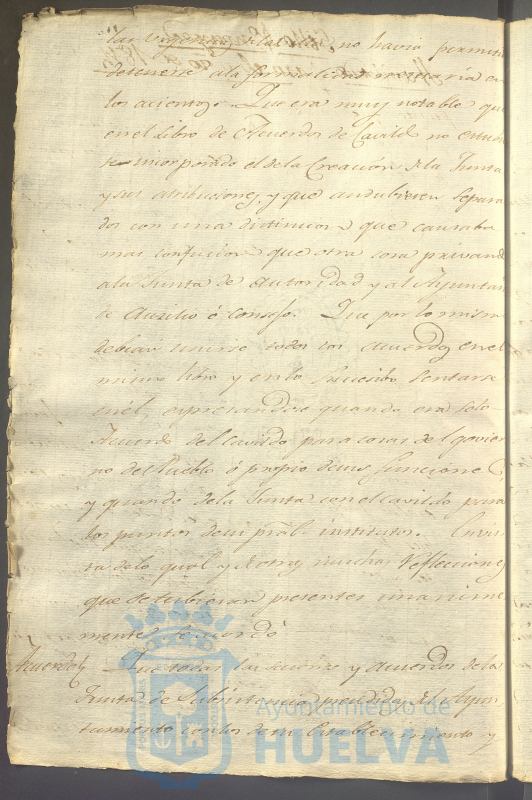 las no havia permitido
detenerse a la formal en
los acientos. Que era muy notable que
en el Libro de Acuerdos de Cavildo no estuvie
te incorporado el de la Creación de la Junta
y sus atribuciones, y que andubieren separa
dos con una distincion que causaba
mas confucion que otra cosa privando
a la Junta de autoridad y al Ayuntam.
de Auxilio ó consejo. Que por lo mismo
debian unirse todos los acuerdos en el
mismo libro y en lo sucecibo sentarse
en él, expresandose quando era solo
Acuerdo del Cavildo para cosas del govier
no del Pueblo ó propio de sus funciones,
y quando de la Junta con el cavildo para
los puntos de su pral. instituto. En vis
ta de lo qual y de otras muchas reflecciones
que se tubieron presentes unanime
mente se acordó
Acuerdo Que todas las acciones y acuerdos de la
Junta de Ayun
tamiento con los de su Establecimiento y
Ayuntamiento de
HUELVA